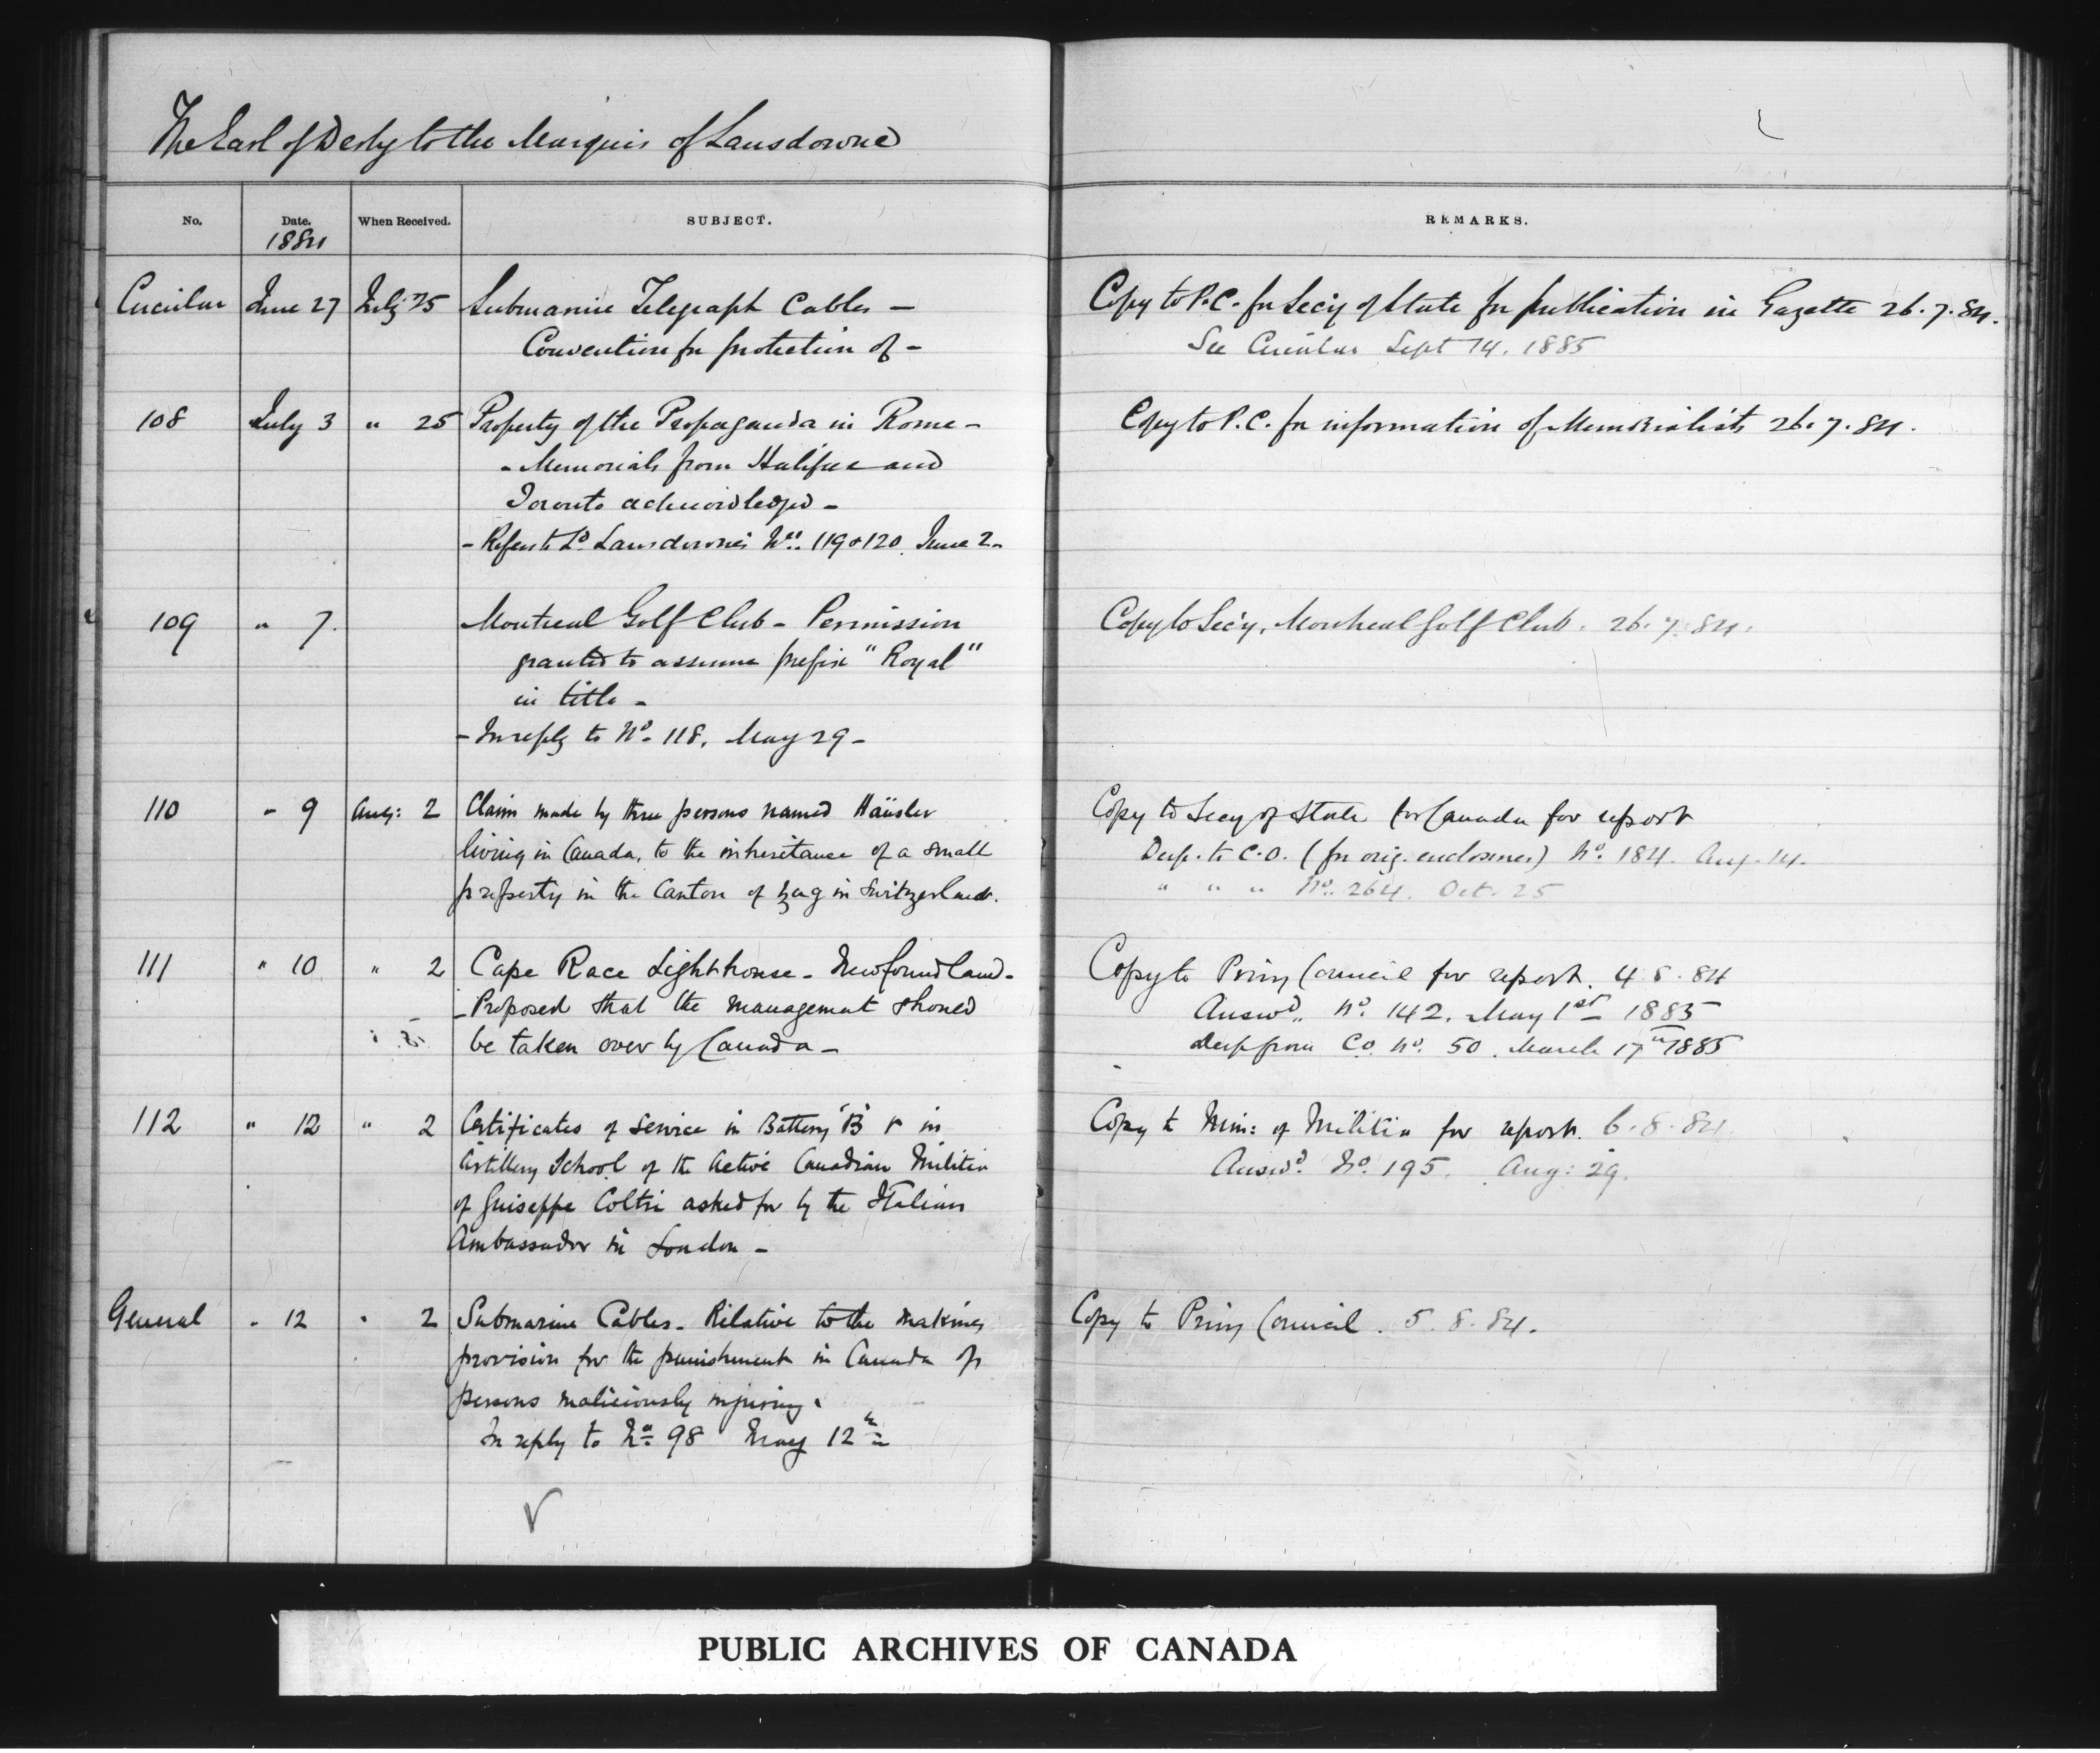 The Earl of Derby to the Marquis of Lansdowne
No. Date. When Received. SUBJECT. REMARKS.
1884
Circular June 27 July 25 Submarine Telegraph Cables —
Convention for protection of —
Copy to P.C. for Secy of State for publication in Gazette 26.7.84.
See Circular Sept 14. 1885
108 July 3 " 25 Property of the Propaganda in Rome —
- Memorials from Halifax and
Toronto acknowledged —
- Refers to Ld. Lansdowne's Nos. 119 & 120. June 2 —
Copy to P.C. for information of Memorialists 26.7.84.
109 " 7. Montreal Golf Club — Permission
granted to assume prefix "Royal"
in title —
- In reply to No. 118. May 29 —
Copy to Secy. Montreal Golf Club. 26.7.84.
110 " 9 Aug: 2 Claim made by three persons named Häusler
living in Canada, to the inheritance of a small
property in the Canton of Zug in Switzerland.
Copy to Secy of State for Canada for report
Desp. to C.O. (for orig. enclosures) No. 184. Aug. 14.
" " " No. 264. Oct. 25
111 " 10 " 2 Cape Race Lighthouse — Newfoundland —
- Proposed that the management should
be taken over by Canada —
Copy to Privy Council for report. 4.8.84
Answd. No. 142. May 1st 1885
Desp from C.O. No. 50. March 17th 1885
112 " 12 " 2 Certificates of service in Battery "B" & in
Artillery School of the Active Canadian Militia
of Guiseppe Coltri asked for by the Italian
Ambassador in London —
Copy to Min: of Militia for report. 6.8.84.
Answd. No. 195. Aug: 29.
General " 12 " 2 Submarine Cables — Relative to the making
provision for the punishment in Canada of
persons maliciously injuring.
In reply to No. 98 May 12th
Copy to Privy Council. 5.8.84.
PUBLIC ARCHIVES OF CANADA